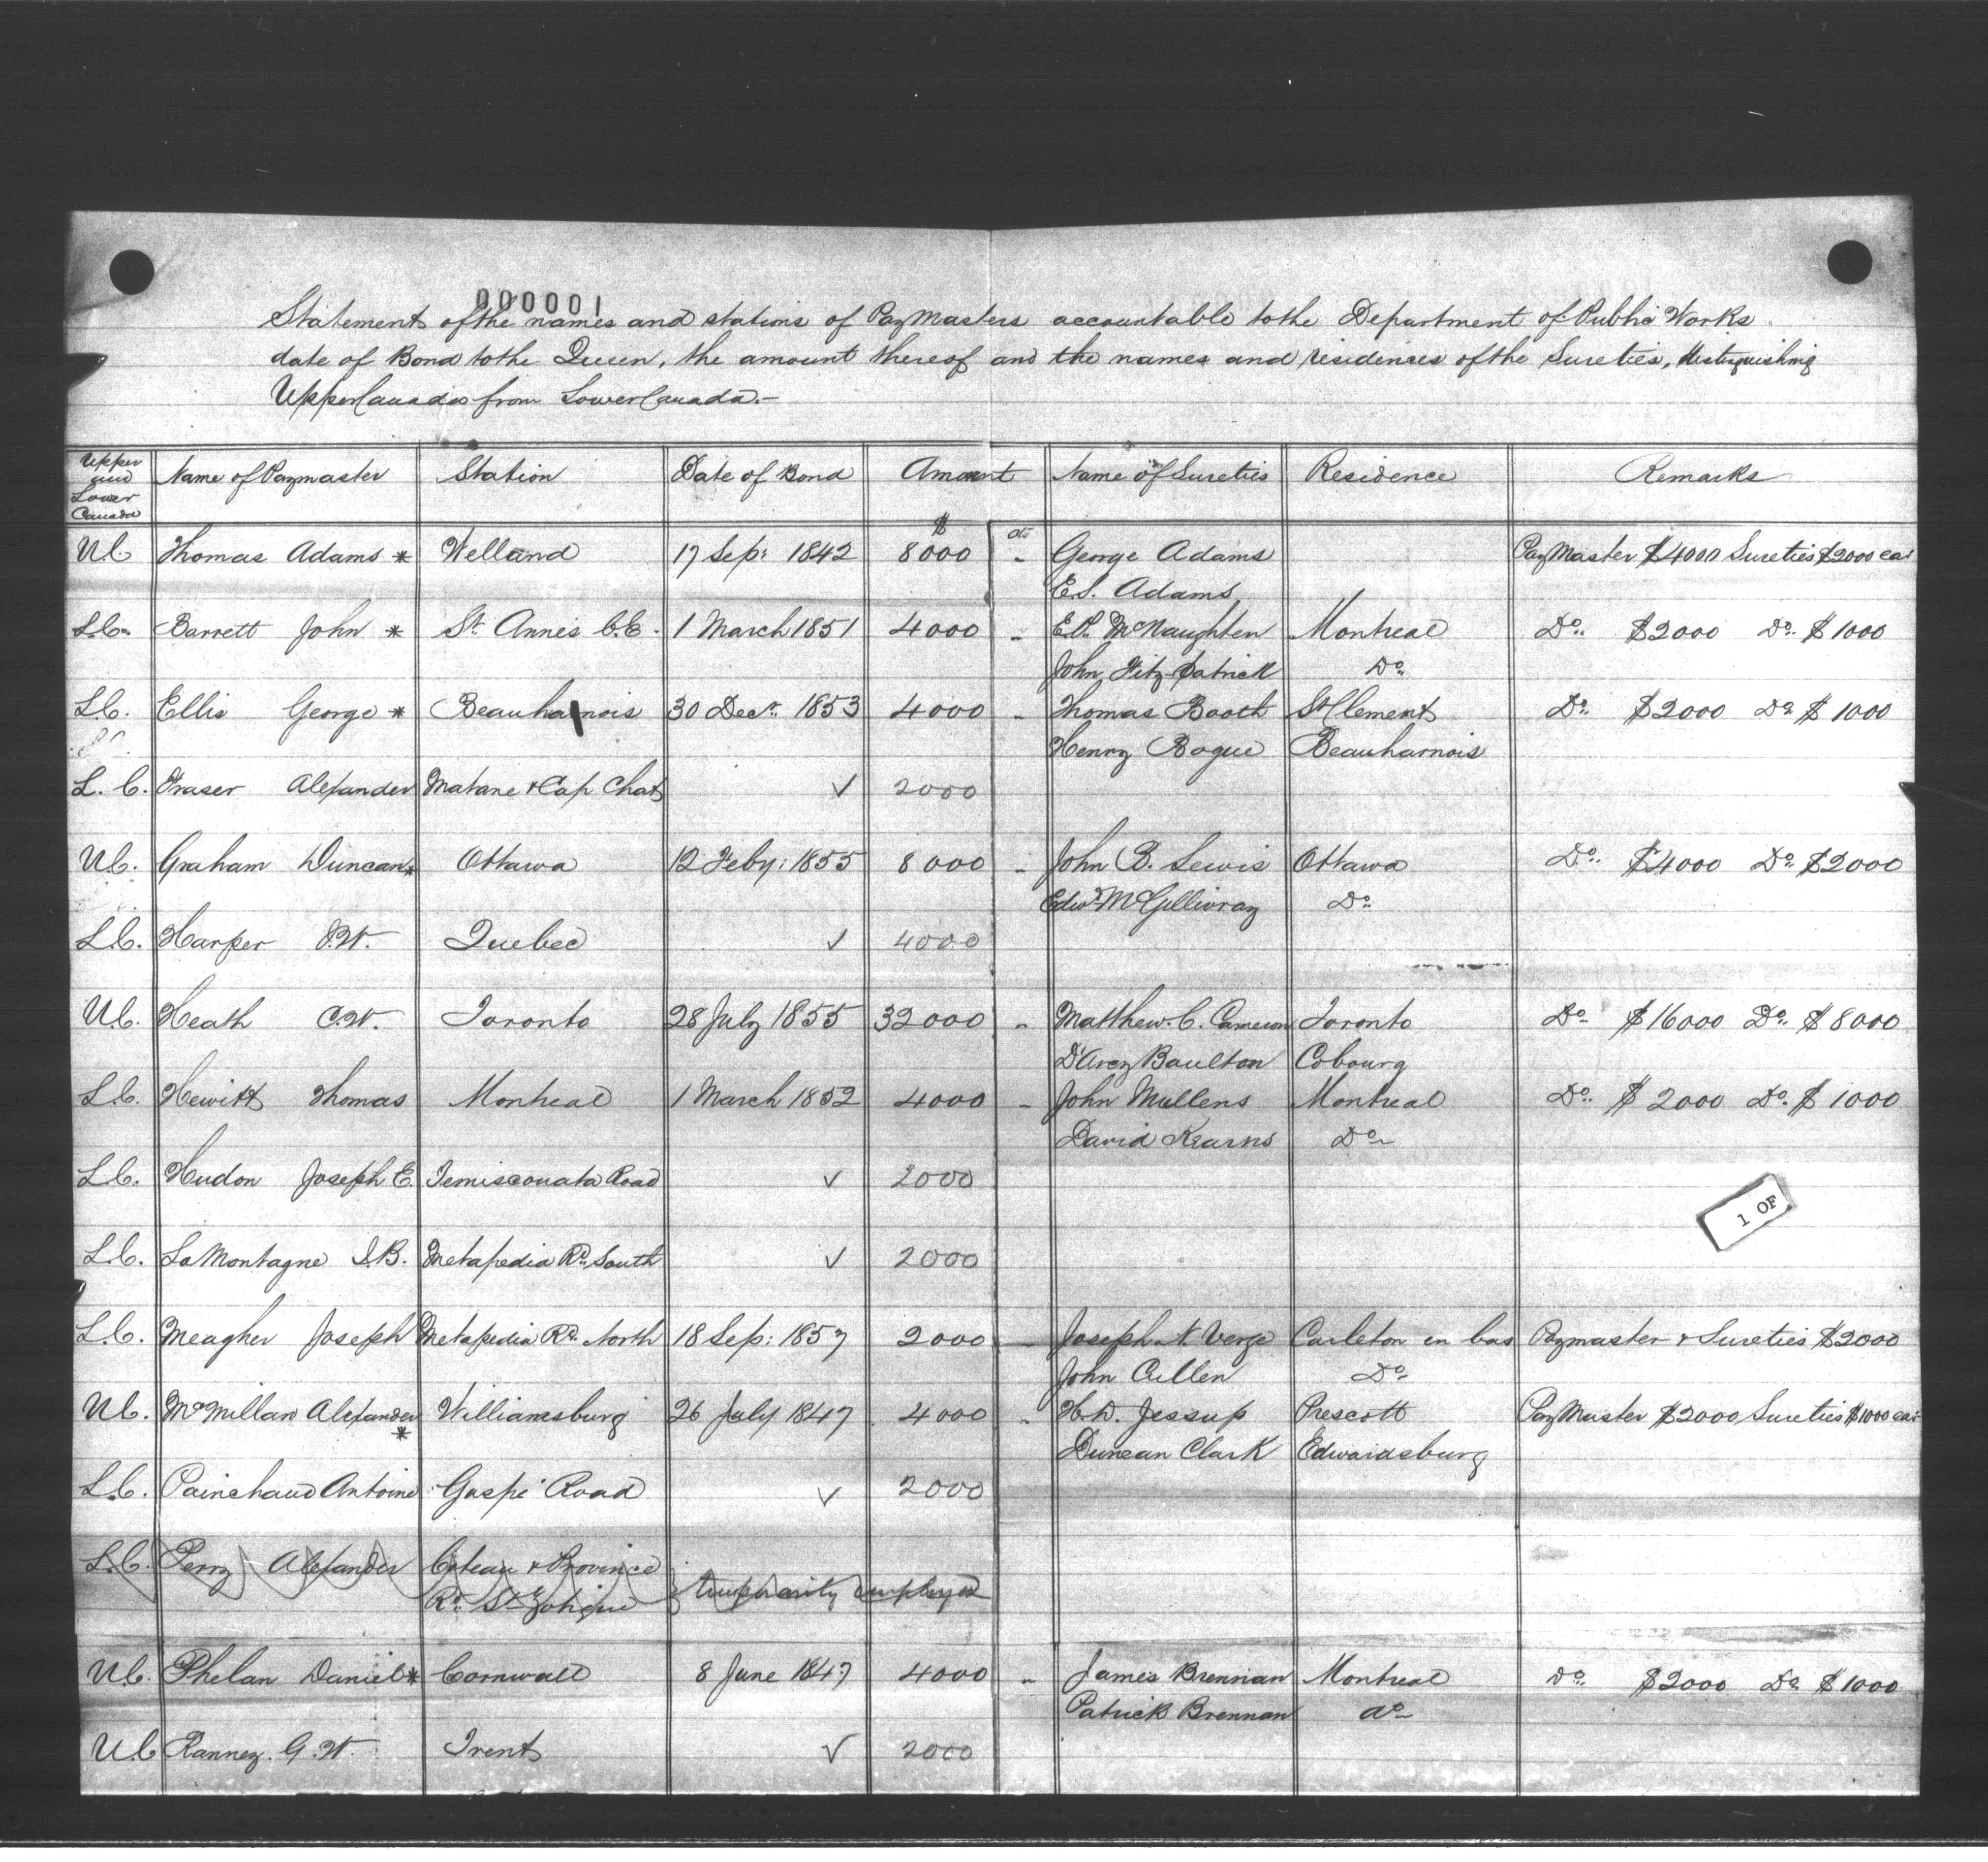 000001
Statement of the names and stations of PayMasters accountable to the Department of Public Works.
date of Bond to the Queen, the amount thereof and the names and residences of the Sureties, distinguishing
Upper Canada from Lower Canada.-
Upper and Lower Canada Name of Paymaster Station Date of Bond Amount Name of Sureties Residence Remarks
$
U.C Thomas Adams * Welland 17 Sep: 1842 8000 - George Adams PayMaster $4000 Sureties $2000 ea:
E.S. Adams
L.C. Barrett John * St. Annes C.E. 1 March 1851 4000 - E.P. McNaughten Montreal Do. $2000 Do. $1000
John Fitz patrick Do
L.C. Ellis George * Beauharnois 30 Decr. 1853 4000 - Thomas Booth St Clement Do. $2000 Do $1000
Henry Bogue Beauharnois
L. C. Fraser Alexander Matane & Cap Chat ✓ 2000
U.C. Graham Duncan * Ottawa 12 Feby: 1855 8000 - John B. Lewis Ottawa Do. $4000 Do $2000
Edwd McGillivray Do
L.C. Harper Quebec ✓ 4000
U.C. Heath C.W. Toronto 28 July 1855 32000 - Matthew. C. Cameron Toronto Do $16000 Do. $8000
D'Arcy Boulton Cobourg
L.C. Hewitt Thomas Montreal 1 March 1852 4000 - John Mullens Montreal Do. $2000 Do. $1000
David Kearns Do
L.C. Hudon Joseph E. Temiscouata Road ✓ 2000
1 OF
L.C. LaMontagne J.B. Metapedia Rd. South ✓ 2000
L.C. Meagher Joseph Metapedia Rd. North 18 Sep: 1857 2000 - Joseph Verge Carleton en bas Paymaster & Sureties $2000
John Cullen Do
U.C. McMillan Alexander * Williamsburg 26 July 1847 4000 - H.D. Jessup Prescott PayMaster $2000 Sureties $1000 ea:
Duncan Clark Edwardsburg
L.C. Painchaud Antoine Gaspé Road ✓ 2000
L.C. Perry Alexander Coteau & Province
Rd. St Zotique temporarily employed
U.C. Phelan Daniel * Cornwall 8 June 1847 4000 - James Brennan Montreal Do. $2000 Do $1000
Patrick Brennan do
U.C Ranney. G.W. Trent ✓ 2000